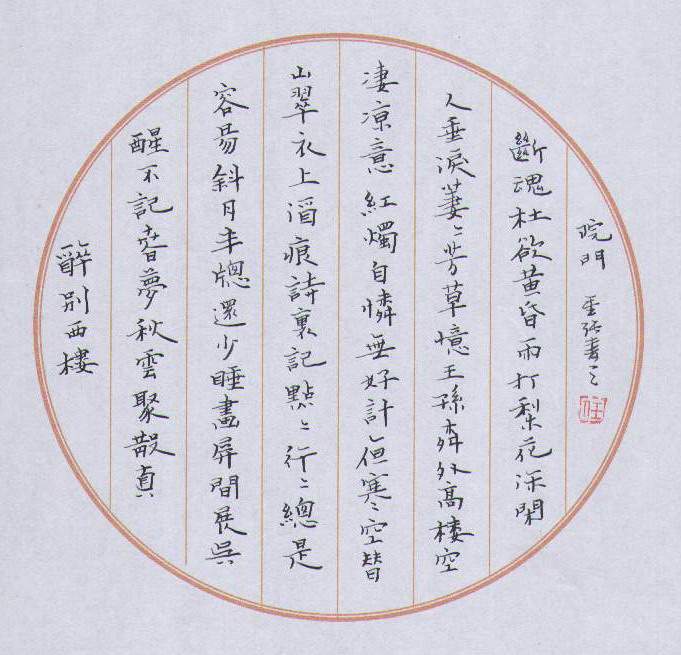 醉別西樓
醒不記春夢秋雲聚散真
容易斜月半牕還少睡畫屏間展吳
山翠衣上酒痕詩裏記點〻行〻總是
凄涼意紅燭自憐無好計但寒〻空替
人垂淚萋〻芳草憶王孫外高樓空
斷魂杜欲黃昏雨打梨花深閉
院門